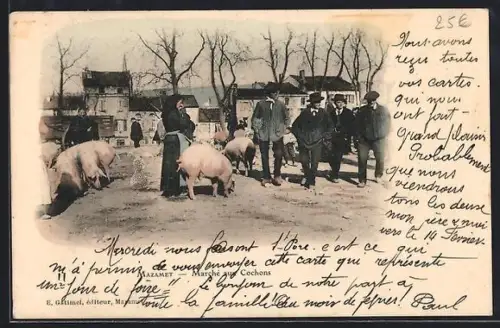 25€
Nous avons
reçu toutes
vos cartes
qui nous
ont fait
Grand plaisir
Probablement
que nous
viendrons
tous les deux
mon père & moi
vers le 14 Février
Mercredi nous faisons c'est ce qui
m'a permis de vous envoyer cette carte que représente
un "jour de foire" le bonjour de notre part à
toute la famille! Au mois de
Paul
11 MAZAMET — Marché aux Cochons
E. Galimel, éditeur, Mazamet